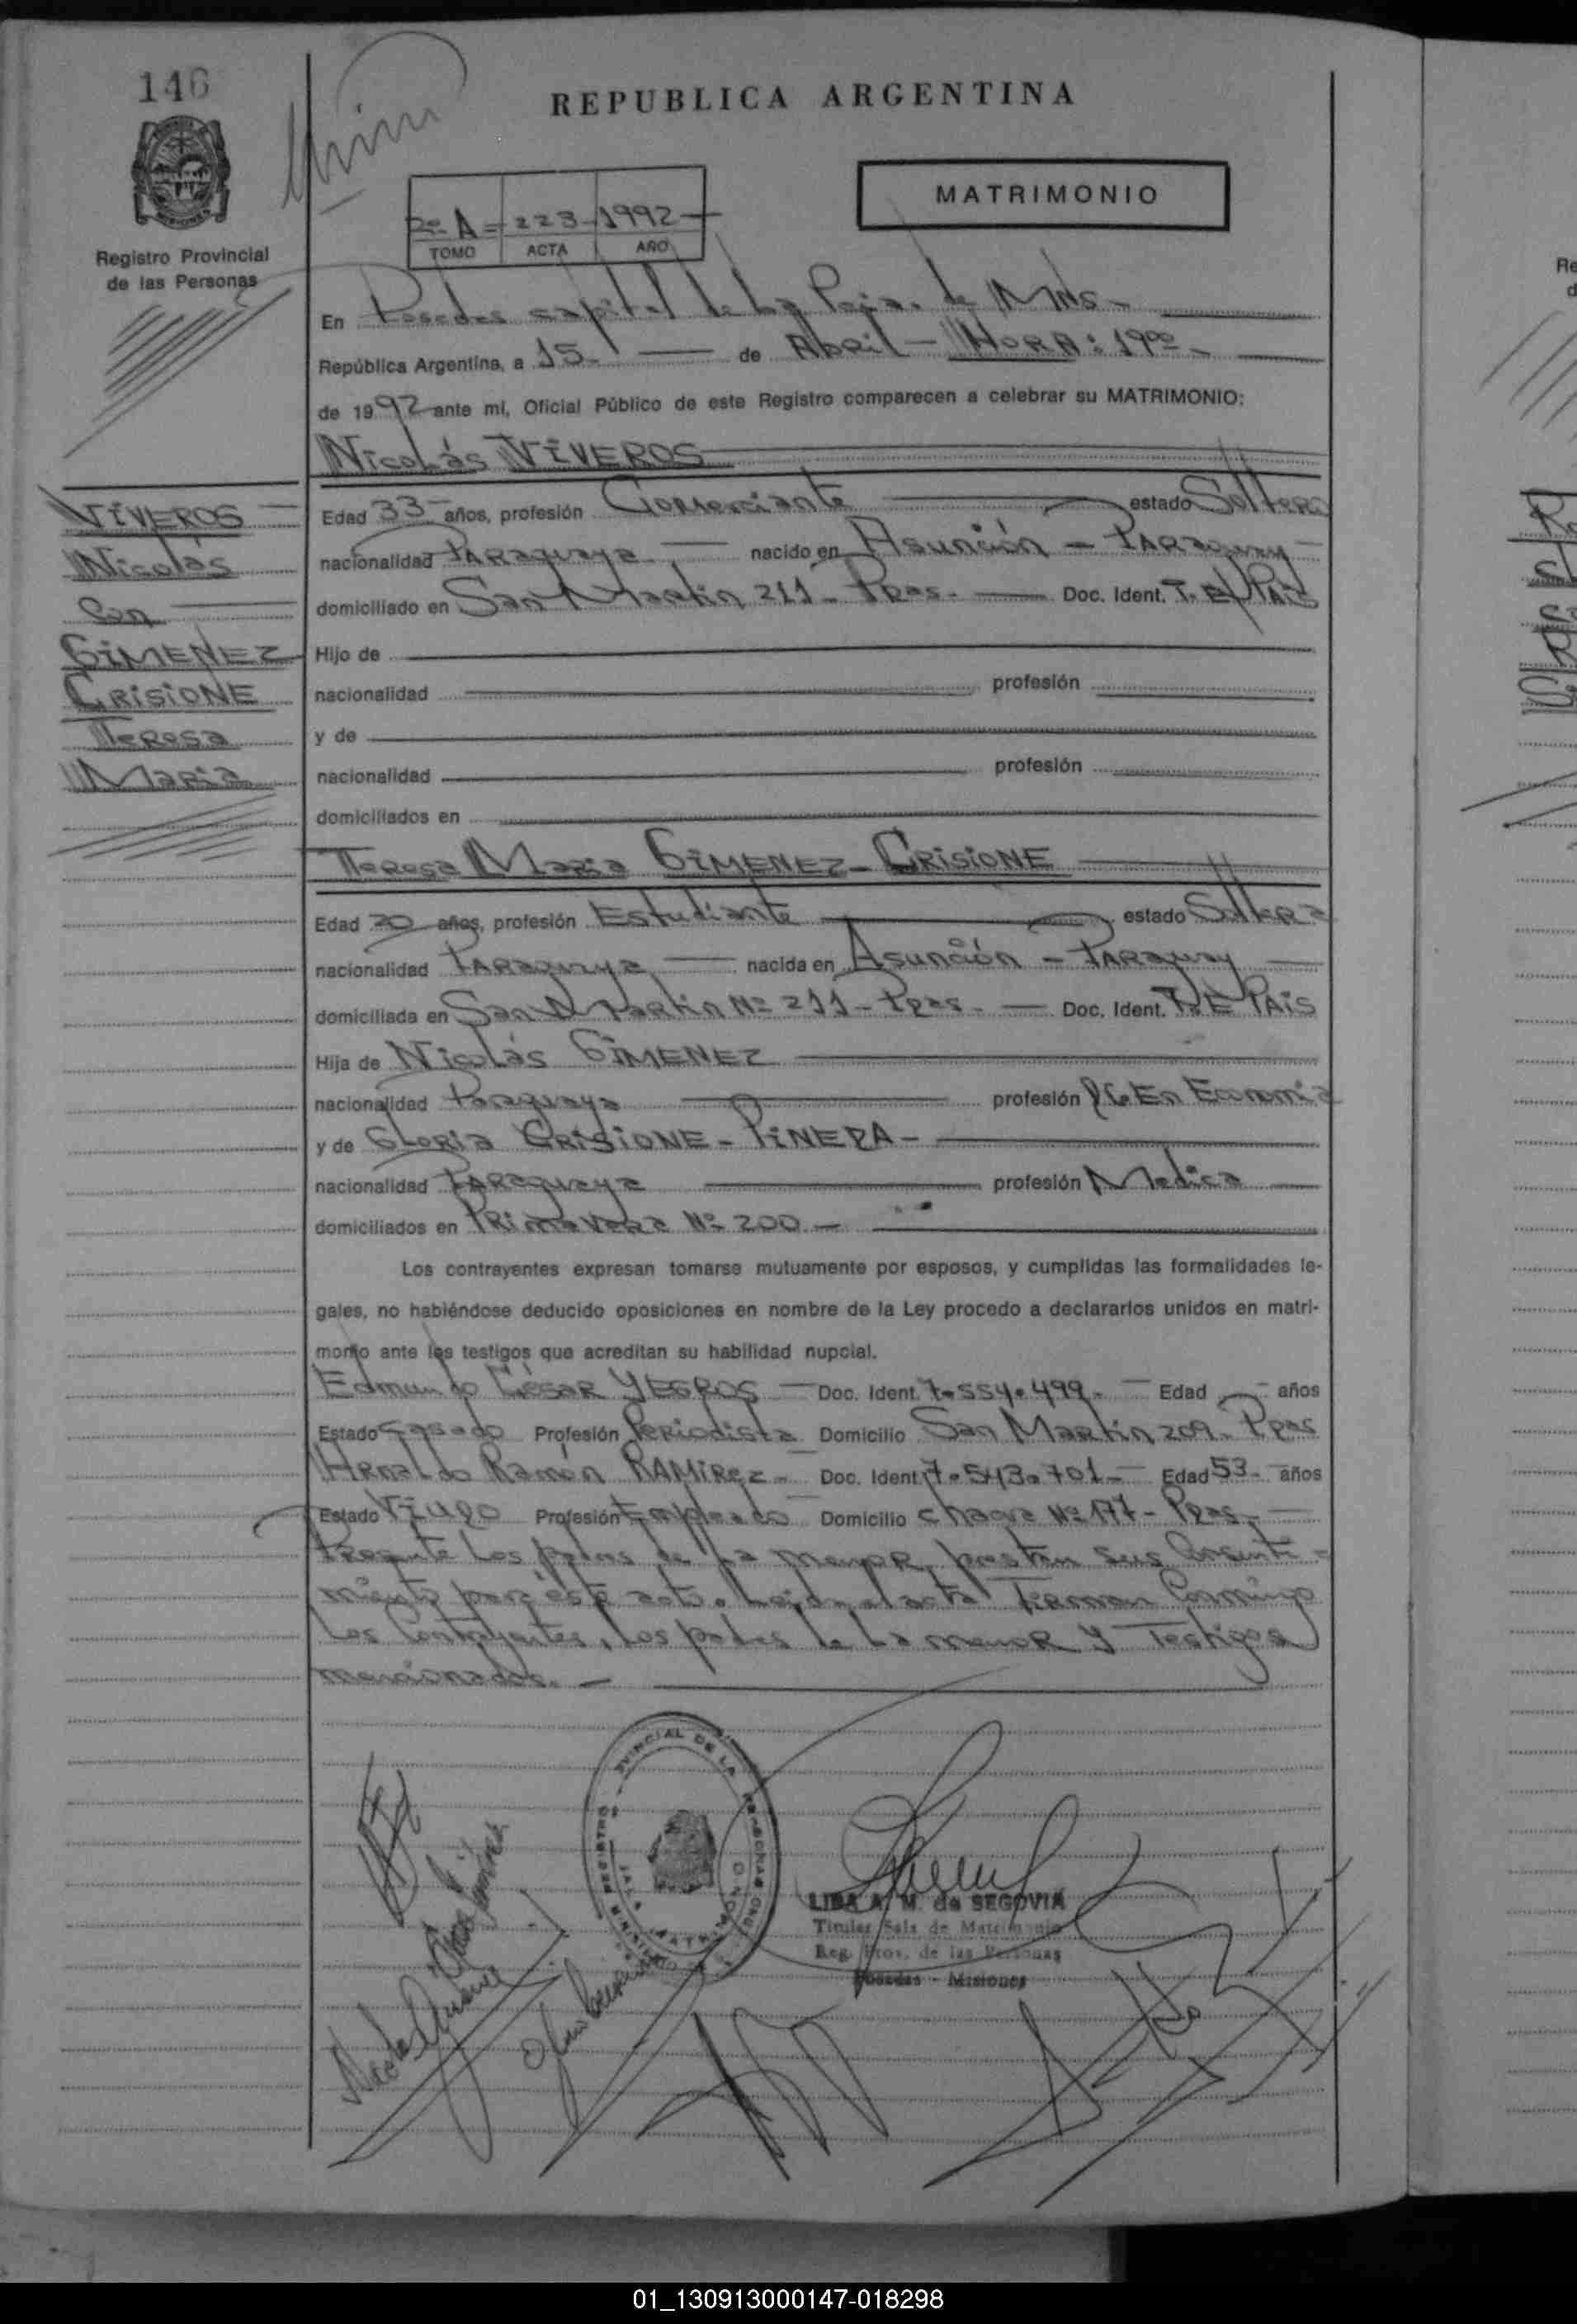 146
REPUBLICA ARGENTINA
MATRIMONIO
2º A = 223 - 1992 -
TOMO ACTA AÑO
MISIONES
Registro Provincial
de las Personas
En Posadas capital de La Pcia. de Mns -
República Argentina, a 15 - de Abril - HORA: 19ºº -
de 1992 ante mi, Oficial Público de este Registro comparecen a celebrar su MATRIMONIO:
Nicolás VIVEROS
Edad 33 - años, profesión Comerciante estado Soltero
nacionalidad PARAguaya - nacido en Asunción - PARAguay -
domiciliado en San Martin 211 - Pdas. - Doc. Ident. T. E/ País
Hijo de
nacionalidad profesión
y de
nacionalidad profesión
domiciliados en
VIVEROS
Nicolás
Con
GIMENEZ
CRISIONE
Teresa
Maria
Teresa Maria GIMENEZ - CRISIONE
Edad 20 años, profesión Estudiante estado Soltera
nacionalidad PARAguaya - nacida en Asunción - PARAguay -
domiciliada en San Martin Nº 211 - Pdas - Doc. Ident. T. E PAIS
Hija de Nicolás GIMENEZ
nacionalidad Paraguaya profesión En Economia
y de Gloria CRISIONE - PINEDA -
nacionalidad PARAguaya profesión Medica
domiciliados en PRimaveRa Nº 200 -
Los contrayentes expresan tomarse mutuamente por esposos, y cumplidas las formalidades le-
gales, no habiéndose deducido oposiciones en nombre de la Ley procedo a declararlos unidos en matri-
monio ante los testigos que acreditan su habilidad nupcial.
Edmundo César YEGROS - Doc. Ident. 7.554.499. - Edad - años
Estado casado Profesión Periodista Domicilio San Martin 209 - Pdas
Hernaldo Ramón RAMIRez - Doc. Ident. 7.543.701 - Edad 53 - años
Estado Viudo Profesión Empleado Domicilio chacra Nº 177 - Pdas -
Presente Los padres de La menor, prestan sus Consenti-
miento para este acto. Leida el acta Firman Conmigo
Los Contrayentes, Los padres de La menor y Testigos
mencionados. -
LIDA A. M. de SEGOVIA
Titular Sala de Matrimonio
Reg. Prov. de las Personas
Posadas - Misiones
01_130913000147-018298